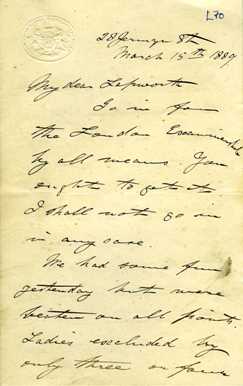 L70
28 Jermyn St
March 15th 1889
My dear Lapworth
Go in for
the London Examinership
by all means. You
ought to get it
I shall not go in
in any case.
We had some fun
yesterday but were
beaten on all points.
Ladies excluded by
only three or four